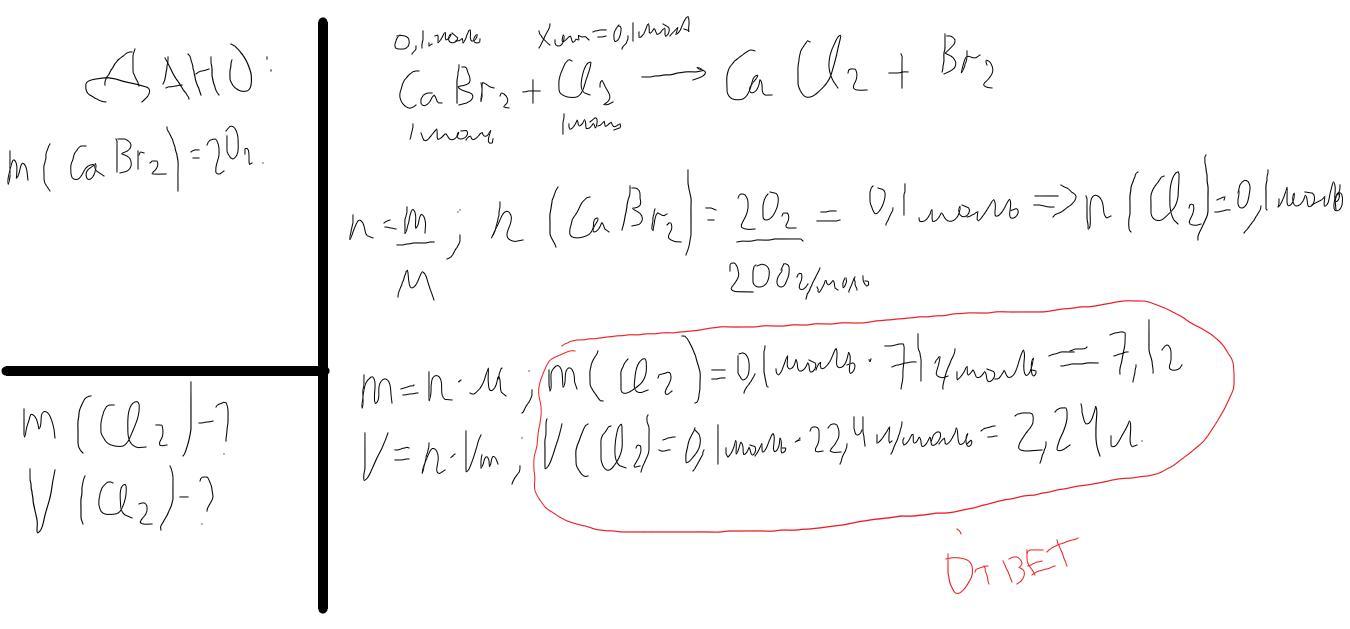 ДАНО:
m(CaBr2)=20г.
m(Cl2)-?
V(Cl2)-?
0,1моль Xмт=0,1моль
CaBr2+Cl2 → CaCl2+Br2
1моль 1моль
n=m/M; n(CaBr2)=20г/200г/моль=0,1моль=>n(Cl2)=0,1моль
m=n·M; m(Cl2)=0,1моль·71г/моль=7,1г
V=n·Vm; V(Cl2)=0,1моль·22,4л/моль=2,24л.
ОТВЕТ